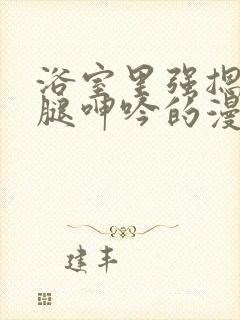 浴室里强摁
腿呻吟的漫
建丰